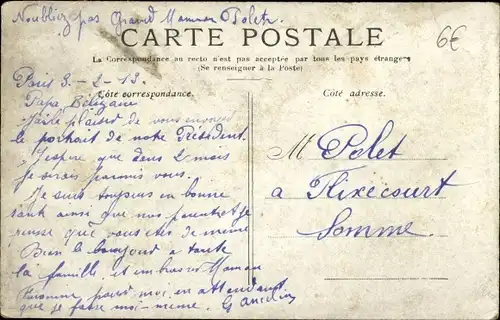 N'oubliez pas Grand Maman Polet.
6€
CARTE POSTALE
La Correspondance au recto n'est pas acceptée par tous les pays étrangers
(Se renseigner à la Poste)
Paris 3-2-13.
Côté correspondance.
Côté adresse.
Papa
J'ai le plaisir de vous envoyer
le portrait de notre Président.
J'espère que dans 2 mois
je serais parmis vous.
Je suis toujours en bonne
santé ainsi que nos parents et je
pense que vous êtes de même
Bien le bonjour à toute
la famille et embrasser Maman
pour moi en attendant
que je fasse moi-même.
Mr Polet
a Flixecourt
Somme.